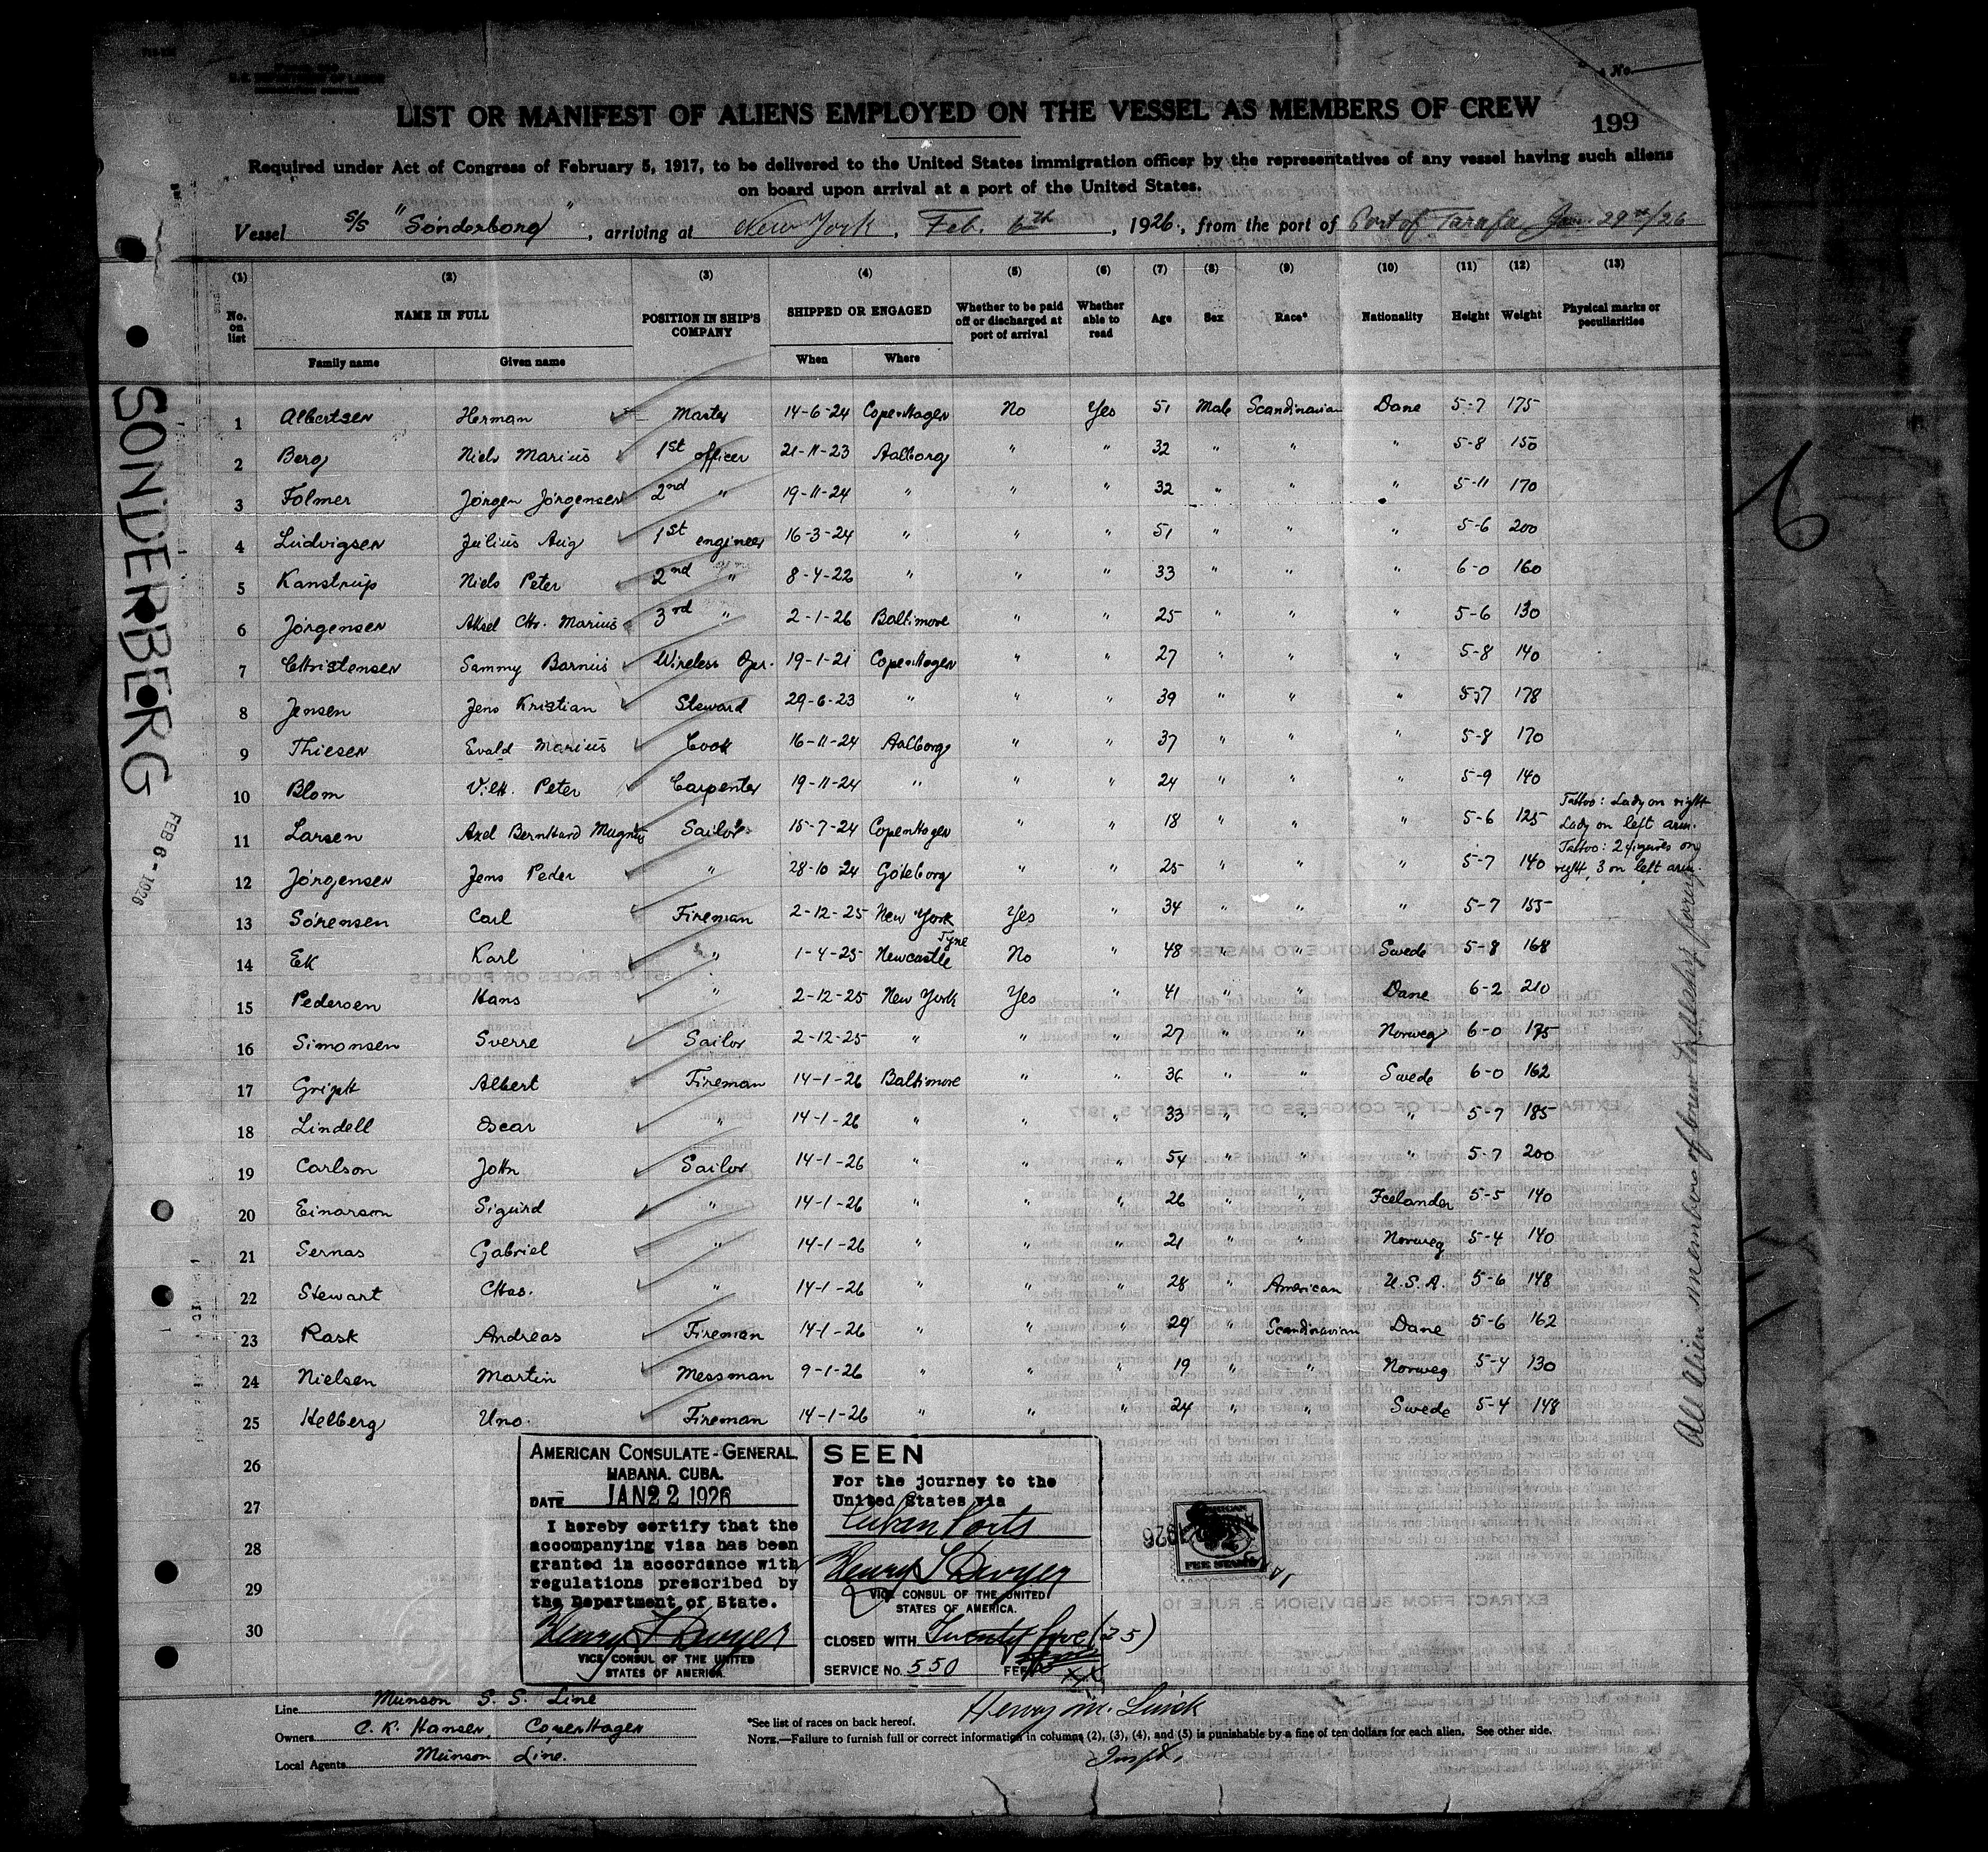 LIST OR MANIFEST OF ALIENS EMPLOYED ON THE VESSEL AS MEMBERS OF CREW
No.
199
Required under Act of Congress of February 5, 1917, to be delivered to the United States immigration officer by the representatives of any vessel having such aliens
on board upon arrival at a port of the United States.
Vessel S/S "Sönderborg", arriving at New York, Feb. 6th, 1926, from the port of Port of Tarafa, Jan. 29th/26
(1) (2) (3) (4) (5) (6) (7) (8) (9) (10) (11) (12) (13)
No. on list NAME IN FULL Family name Given name POSITION IN SHIP'S COMPANY SHIPPED OR ENGAGED When Where Whether to be paid off or discharged at port of arrival Whether able to read Age Sex Race* Nationality Height Weight Physical marks or peculiarities
1 Albertsen Herman Master 14-6-24 Copenhagen No Yes 51 Male Scandinavian Dane 5-7 175
2 Berg Niels Marius 1st officer 21-11-23 Aalborg " " 32 " " " 5-8 150
3 Folmer Jörgen Jörgensen 2nd " 19-11-24 " " " 32 " " " 5-11 170
4 Ludvigsen Julius Aug 1st engineer 16-3-24 " " " 51 " " " 5-6 200
5 Kanstrup Niels Peter 2nd " 8-4-22 " " " 33 " " " 6-0 160
6 Jörgensen Aksel Chr. Marius 3rd " 2-1-26 Baltimore " " 25 " " " 5-6 130
7 Christensen Sammy Barnus Wireless Opr. 19-1-21 Copenhagen " " 27 " " " 5-8 140
8 Jensen Jens Kristian Steward 29-6-23 " " " 39 " " " 5-7 178
9 Thiesen Evald Marius Cook 16-11-24 Aalborg " " 37 " " " 5-8 170
10 Blom Vilh. Peter Carpenter 19-11-24 " " " 24 " " " 5-9 140
11 Larsen Axel Bernhard Magnus Sailor 15-7-24 Copenhagen " " 18 " " " 5-6 125 Tattoo: Lady on right Lady on left arm.
12 Jörgensen Jens Peder " 28-10-24 Göteborg " " 25 " " " 5-7 140 Tattoo: 2 figures on right, 3 on left arm.
13 Sörensen Carl Fireman 2-12-25 New York Yes " 34 " " " 5-7 155
14 Ek Karl " 1-4-25 Newcastle Tyne No " 48 " " Swede 5-8 168
15 Pedersen Hans " 2-12-25 New York Yes " 41 " " Dane 6-2 210
16 Simonsen Sverre Sailor 2-12-25 " " " 27 " " Norweg 6-0 175
17 Griph Albert Fireman 14-1-26 Baltimore " " 36 " " Swede 6-0 162
18 Lindell Oscar " 14-1-26 " " " 33 " " " 5-7 185
19 Carlson John Sailor 14-1-26 " " " 54 " " " 5-7 200
20 Einarson Sigurd " 14-1-26 " " " 26 " " Icelander 5-5 140
21 Sernas Gabriel " 14-1-26 " " " 21 " " Norweg 5-4 140
22 Stewart Chas. " 14-1-26 " " " 28 " American U.S.A. 5-6 148
23 Rask Andreas Fireman 14-1-26 " " " 29 " Scandinavian Dane 5-6 162
24 Nielsen Martin Messman 9-1-26 " " " 19 " " Norweg 5-4 130
25 Helberg Uno. Fireman 14-1-26 " " " 24 " " Swede 5-4 148
26
27
28
29
30
All Alien members of crew
SONDERBERG
FEB 6 - 1926
6
AMERICAN CONSULATE-GENERAL
HABANA. CUBA.
DATE JAN 22 1926
I hereby certify that the
accompanying visa has been
granted in accordance with
regulations prescribed by
the Department of State.
Henry T Dwyer
VICE CONSUL OF THE UNITED
STATES OF AMERICA.
SEEN
For the journey to the
United States via
Cuban Ports
Henry T Dwyer
VICE CONSUL OF THE UNITED
STATES OF AMERICA.
CLOSED WITH Twenty five (25)
SERVICE No. 550 FEE
FEE STAMP
1926
Line Munson S. S. Line
Owners C. K. Hansen, Copenhagen
Local Agents Munson Line.
*See list of races on back hereof.
Henry M. Linick
NOTE.—Failure to furnish full or correct information in columns (2), (3), (4), and (5) is punishable by a fine of ten dollars for each alien. See other side.
Inspt.